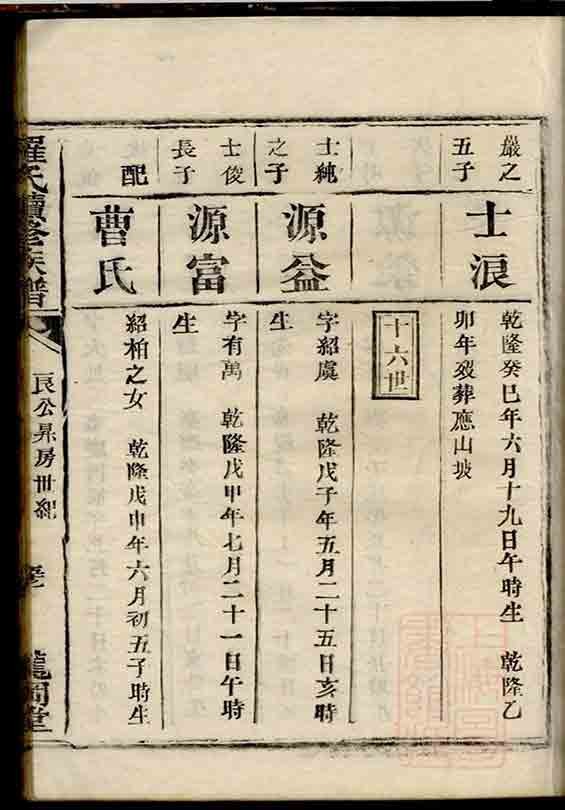 嚴之
五子
士浪
乾隆癸巳年六月十九日午時生 乾隆乙
卯年歿葬應山坡
十六世
士純
之子
源益
字紹虞 乾隆戊子年五月二十五日亥時
生
士俊
長子
源富
字有萬 乾隆戊甲年七月二十一日午時
生
配
曹氏
紹柏之女 乾隆戊申年六月初五子時生
羅氏續修族譜
良公昇房世紀